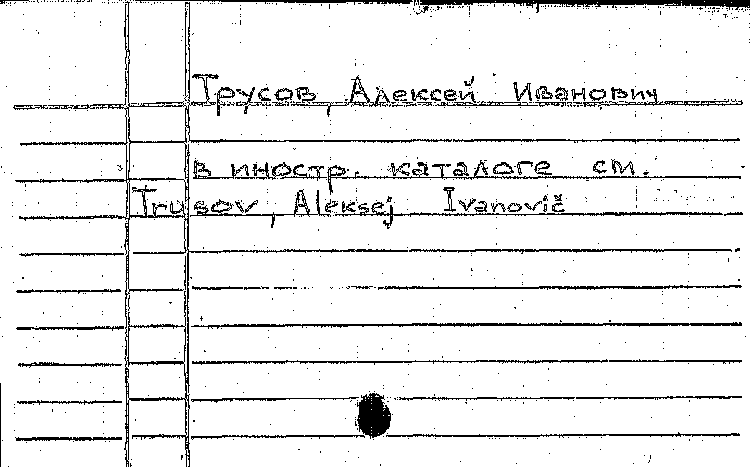 Трусов, Алексей Иванович
в иностр. каталоге см.
Trusov, Aleksej Ivanovič